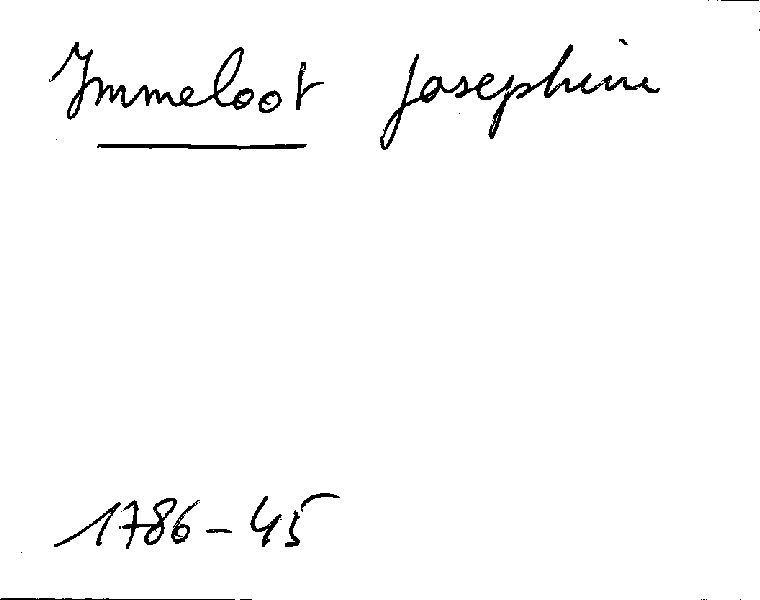 Immeloot Josephine
1786-45